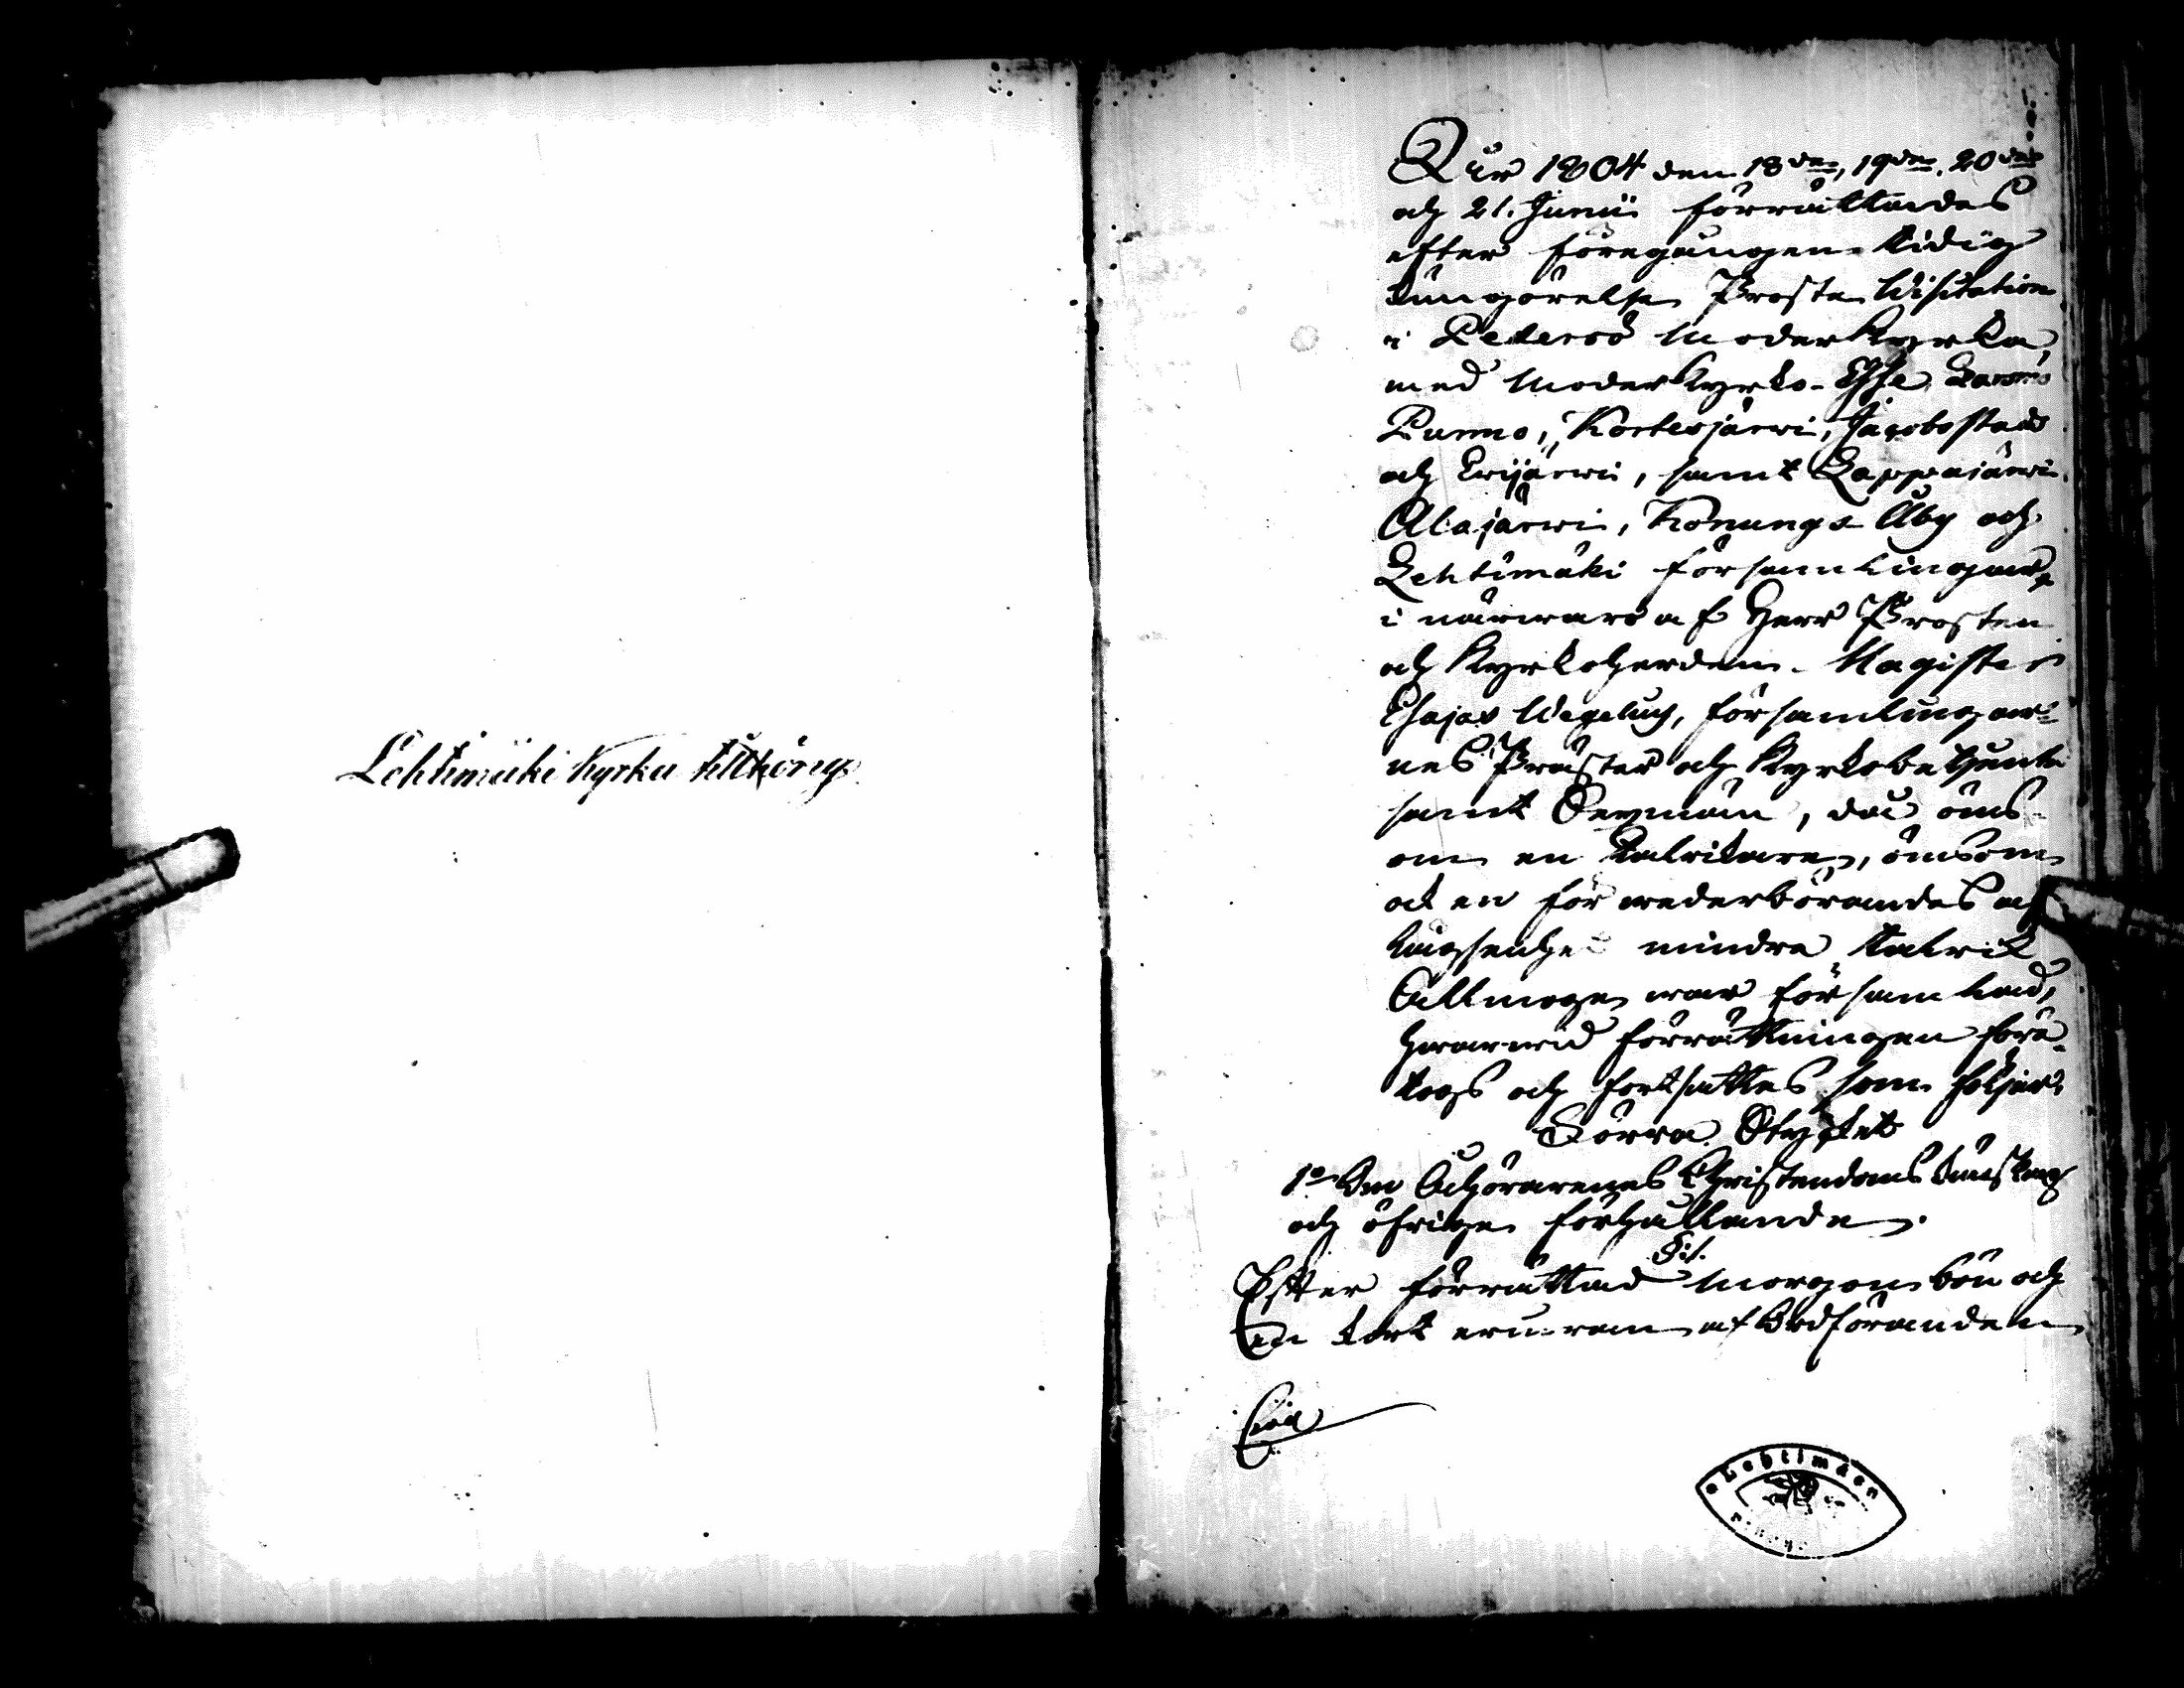 Lehtimäki Kyrka tillhörig
Åhr 1804 den 18de, 19de, 20de
och 21. Junii förrättades
efter föregången tidig
kungörelse Proste Visitation
i Pedersö Moderkyrka,
med Moderkyrko- Esse
Purmo, Kortesjärvi, Jacobstads
och Ewijärwi, samt Lappajärvi
Alajärvi, Konungs Åby och
Lehtimäki församlingar,
i närwaro af Herr Prosten
och Kyrkoherden Magister
Esajas Wegelius, församlingar-
nes Präster och Kyrkobetjente
samt Sexmän, då öms-
om en talrikare, ömsom
ock en för wederbörandes af-
lägsenhet mindre talrik
Allmoge war församlad,
hwarwid förrättningen före-
togs och fortsattes som följer.
Förra Stycket
1o Om Åhörarenes Christendoms kunskap
och öfrige förhållande.
§:1.
Efter förrättad Morgonbön och
en kort erinran af Ordföranden
Lehtimäen